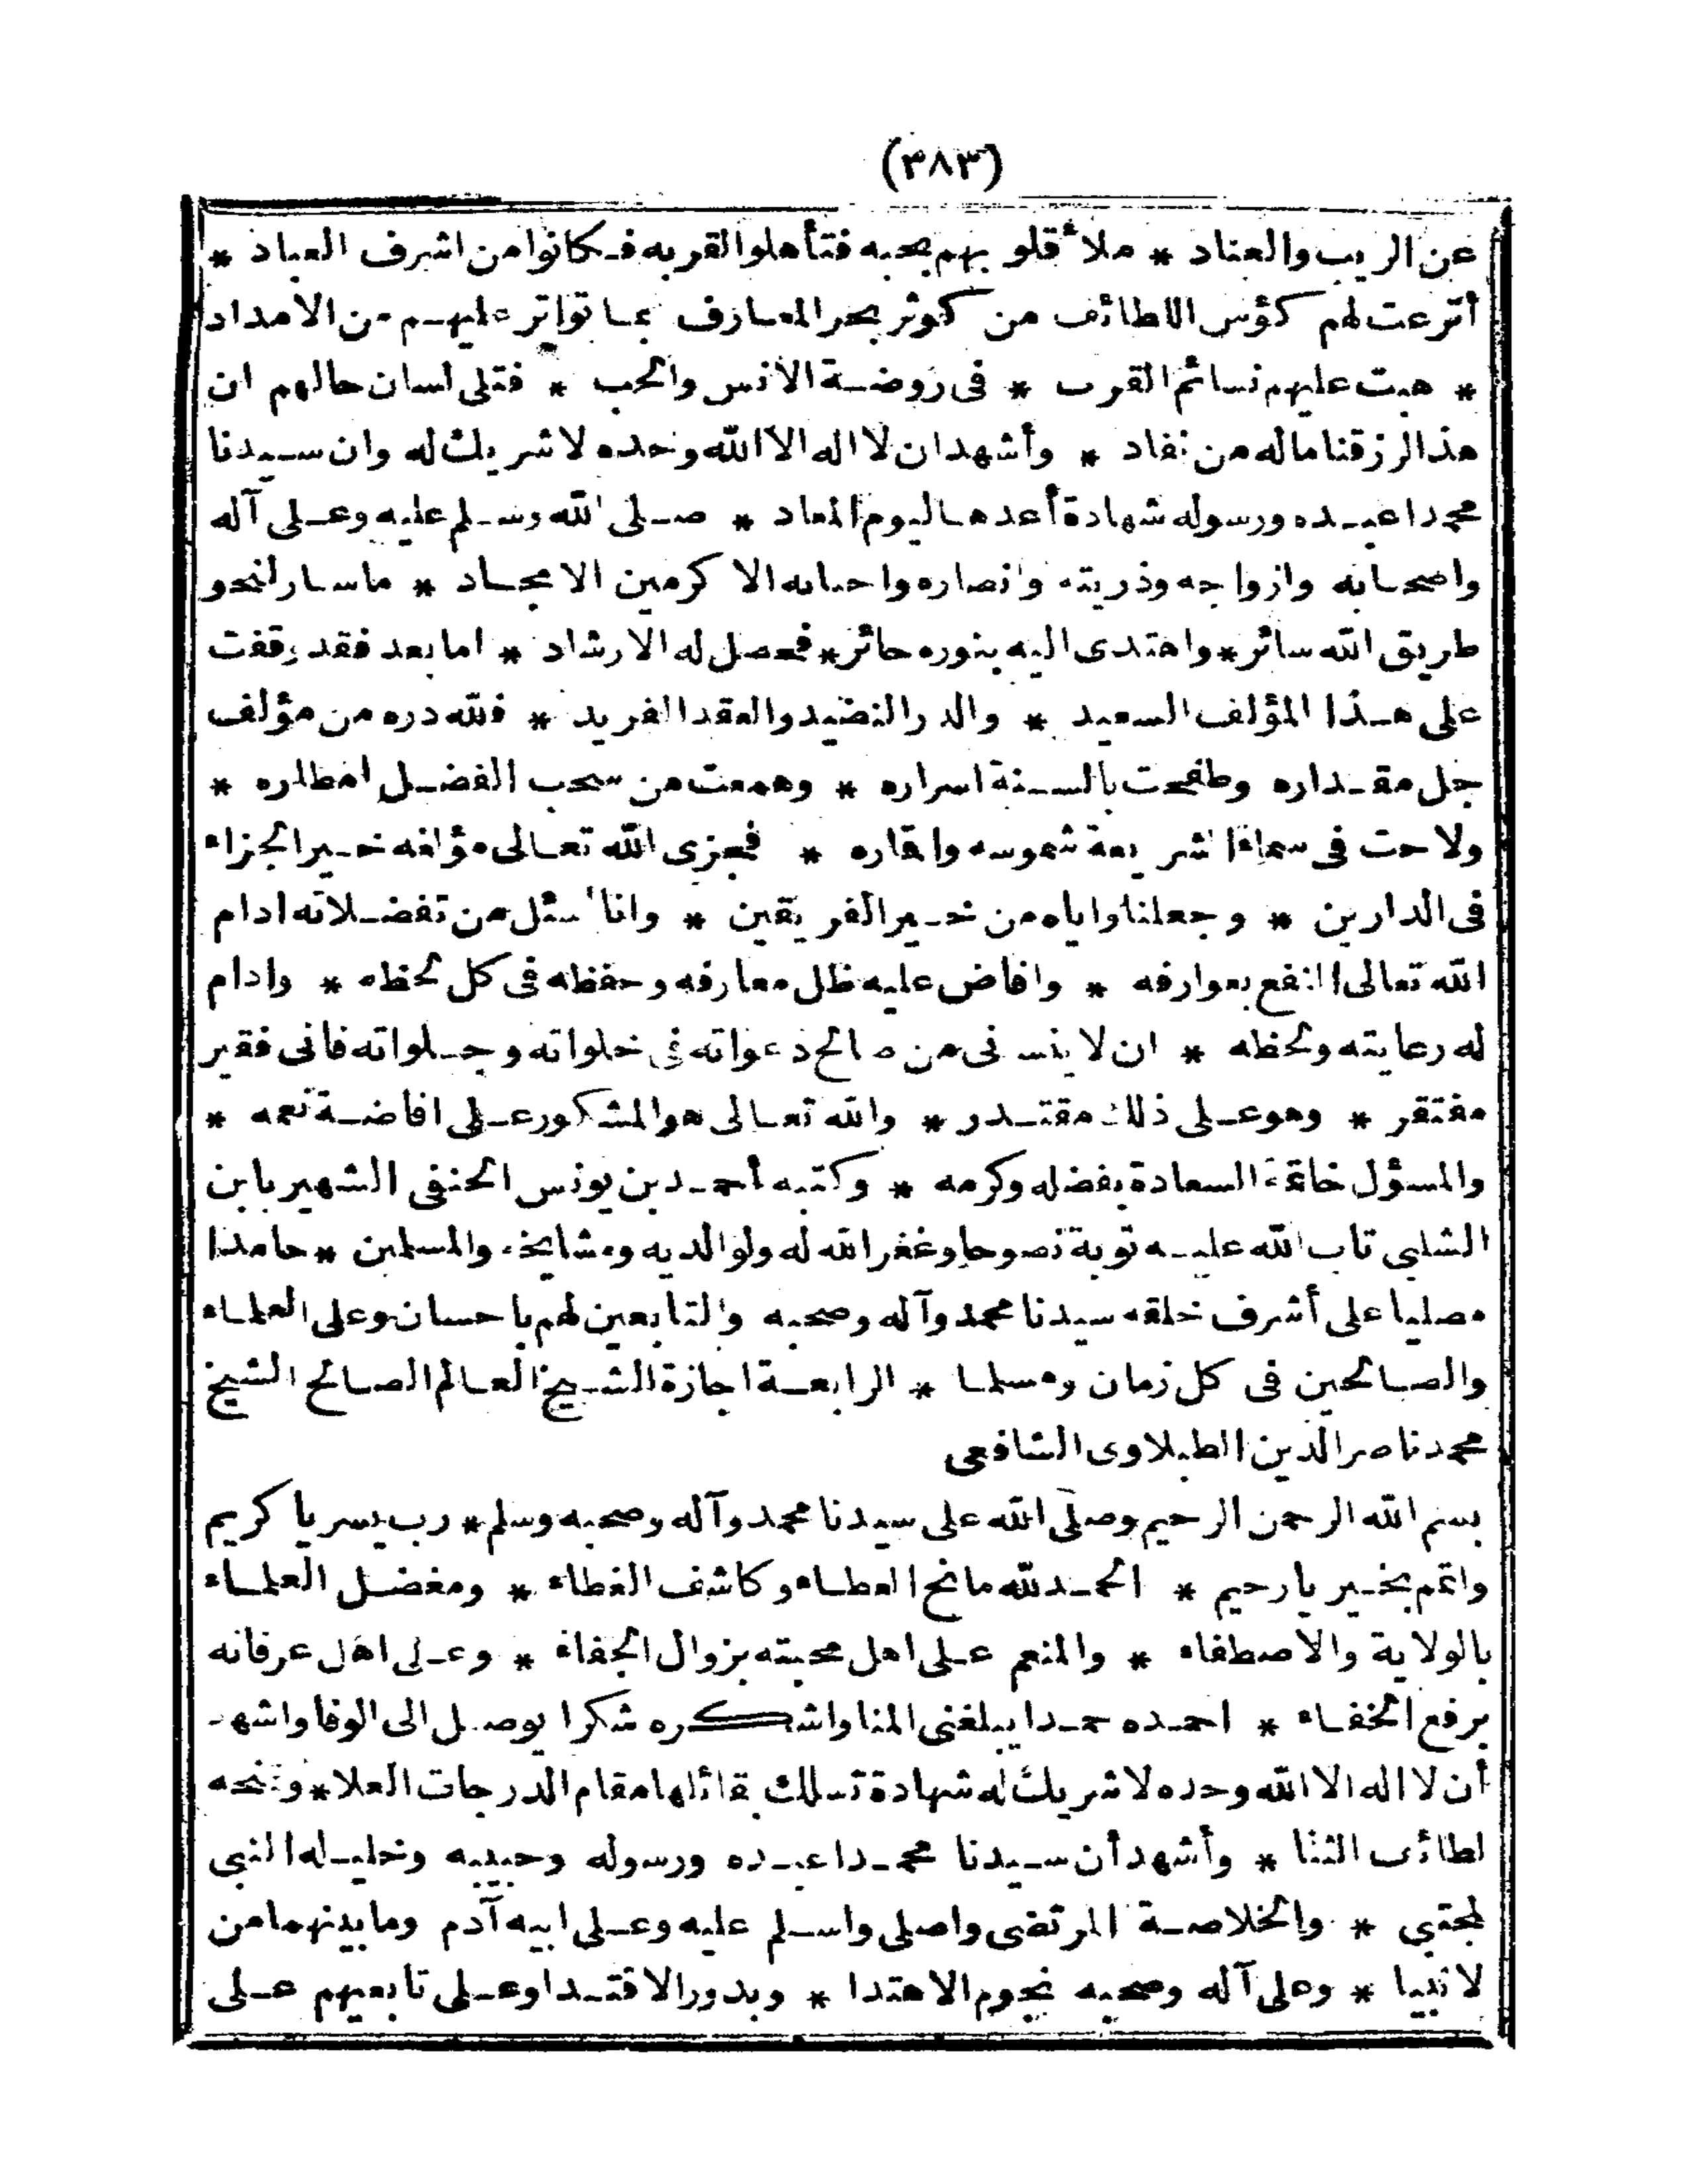 (٣٨٣)
عن الريب والعناد * ملأ قلوبهم بحبه فتأهلوا لقربه فكانوا من اشرف العباد *
أترعت لهم كؤس اللطائف من كوثر بحر المعارف بما تواتر عليهم من الامداد
* هبت عليهم نسائم القرب * فى روضة الانس والحب * فتلى لسان حالهم ان
هذا لرزقنا ماله من نفاد * وأشهد ان لا اله الا الله وحده لا شريك له وان سيدنا
محمدا عبده ورسوله شهادة أعدها ليوم المعاد * صلى الله وسلم عليه وعلى آله
واصحابه وازواجه وذريته وانصاره واحبابه الاكرمين الامجاد * ما سار لنحو
طريق الله سائر * واهتدى اليه بنوره حائر * فحصل له الارشاد * اما بعد فقد وقفت
على هذا المؤلف السعيد * والدر النضيد والعقد الفريد * فلله دره من مؤلف
جل مقداره وطفحت بالسنة اسراره * وهمعت من سحب الفضل امطاره *
ولاحت فى سماء الشريعة شموسه واقماره * فجزى الله تعالى مؤلفه خير الجزاء
فى الدارين * وجعلنا واياه من خير الفريقين * وانا اسئل من تفضلاته ادام
الله تعالى النفع بعوارفه * وافاض عليه ظل معارفه وحفظه فى كل لحظه * وادام
له رعايته ولحظه * ان لا ينسنى من صالح دعواته فى خلواته وجلواته فانى فقير
مفتقر * وهو على ذلك مقتدر * والله تعالى هو المشكور على افاضة نعمه *
والمسؤل خاتمة السعادة بفضله وكرمه * وكتبه أحمد بن يونس الحنفى الشهير بابن
الشلبى تاب الله عليه توبة نصوحا وغفر الله له ولوالديه ومشايخه والمسلمين * حامدا
مصليا على أشرف خلقه سيدنا محمد وآله وصحبه والتابعين لهم باحسان وعلى العلماء
والصالحين فى كل زمان ومسلما * الرابعة اجازة الشيخ العالم الصالح الشيخ
محمد ناصر الدين الطبلاوى الشافعى
بسم الله الرحمن الرحيم وصلى الله على سيدنا محمد وآله وصحبه وسلم * رب يسر يا كريم
واتمم بخير يا رحيم * الحمد لله مانح العطاء وكاشف الغطاء * ومفضل العلماء
بالولاية والاصطفاء * والمنعم على اهل محبته بزوال الجفاء * وعلى اهل عرفانه
برفع الخفاء * احمده حمدا يبلغنى المنا واشكره شكرا يوصل الى الوفا واشهد
أن لا اله الا الله وحده لا شريك له شهادة تسلك بقائلها مقام الدرجات العلا * وتمنحه
لطائف الثنا * وأشهد أن سيدنا محمدا عبده ورسوله وحبيبه وخليله النبى
لمجتبى * والخلاصة المرتضى واصلى واسلم عليه وعلى ابيه آدم وما بينهما من
لانبيا * وعلى آله وصحبه نجوم الاهتدا * وبدور الاقتدا وعلى تابعيهم على